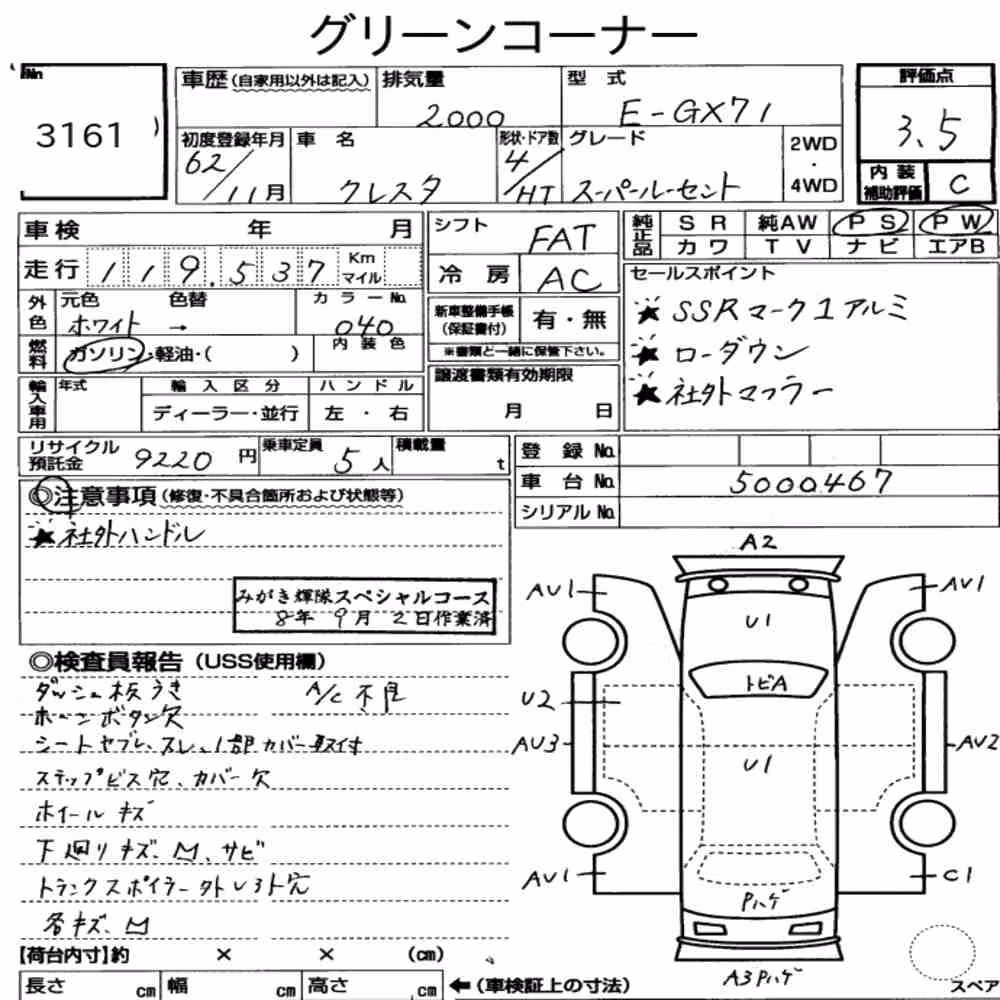 グリーンコーナー
No.
3161
車歴(自家用以外は記入)
排気量
2000
型 式
E-GX71
評価点
3.5
内装補助評価
C
初度登録年月
62/11月
車 名
クレスタ
形状・ドア数
4/HT
グレード
スーパールーセント
2WD
・
4WD
車検 年 月
走行 119,537 Km マイル
シフト
FAT
冷 房
AC
純正品
SR 純AW PS PW
カワ TV ナビ エアB
外色
元色 色替
ホワイト →
カラーNo.
040
燃料
ガソリン・軽油・( )
内装色
新車整備手帳
(保証書付)
有・無
※書類と一緒に保管下さい。
セールスポイント
★SSRマーク1アルミ
★ローダウン
★社外マフラー
輸入車用
年式
輸入区分
ディーラー・並行
ハンドル
左・右
譲渡書類有効期限
月 日
リサイクル預託金 9220円
乗車定員 5人
積載量 t
登録No.
車台No. 5000467
シリアルNo.
◎注意事項(修復・不具合箇所および状態等)
★社外ハンドル
みがき輝隊スペシャルコース
8年 9月 2日作業済
◎検査員報告(USS使用欄)
ダッシュ板うき A/C不良
ホーンボタン欠
シートヤブレ、スレ、1部カバー取付
ステップビス穴、カバー欠
ホイールキズ
下廻りキズ、M、サビ
トランクスポイラー外U3ト穴
各キズ、M
A2
AV1
AV1
U1
トビA
U2
AV3
U1
AV2
AV1
C1
Pハゲ
A3Pハゲ
スペア
【荷台内寸】約 × × (cm)
長さ cm 幅 cm 高さ cm ←(車検証上の寸法)